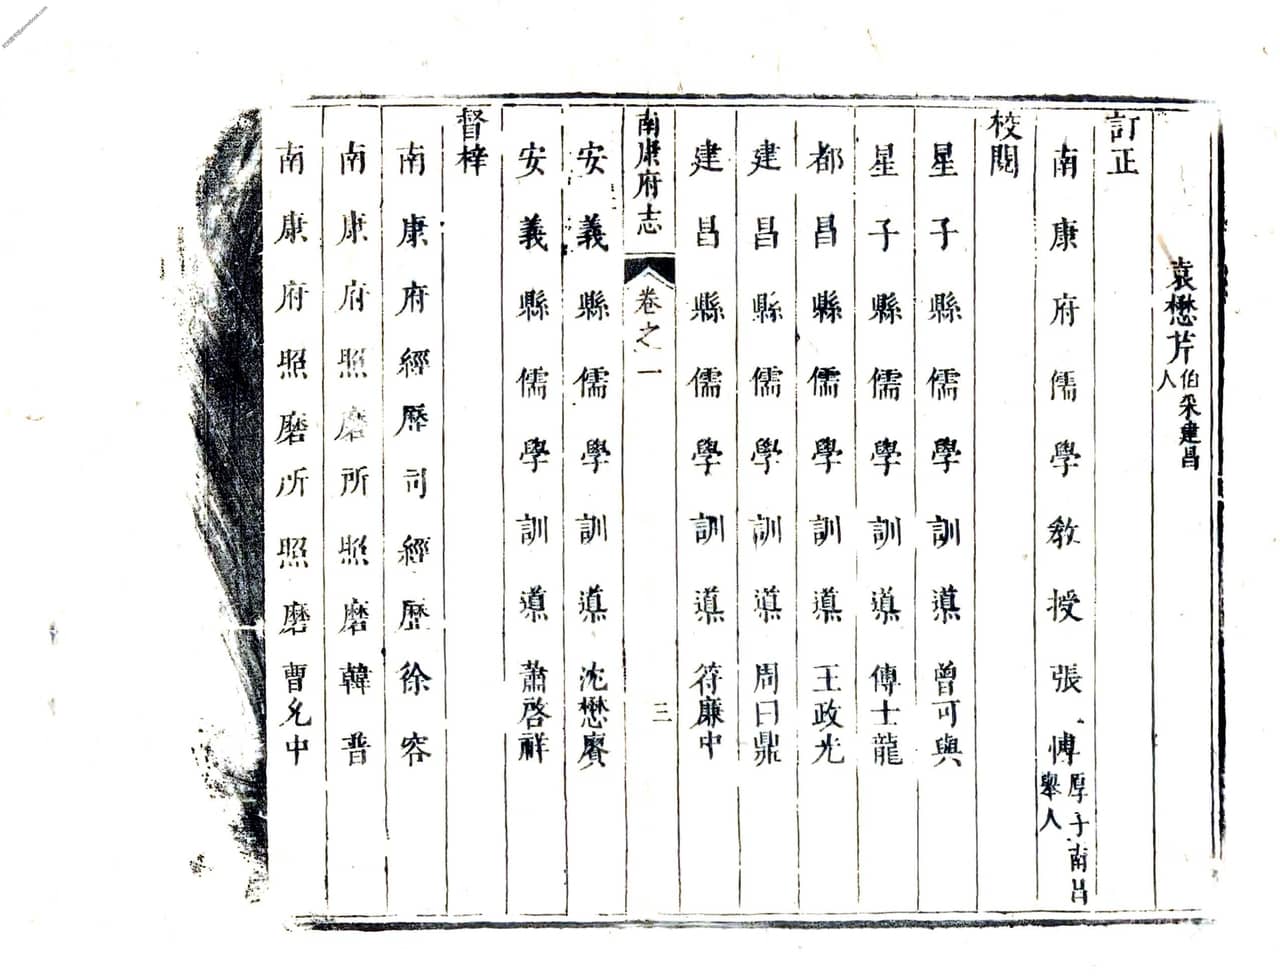 袁懋芹伯采建昌人
訂正
南康府儒學教授張 博厚子南昌舉人
校閱
星子縣儒學訓導曾可與
星子縣儒學訓導傅士龍
都昌縣儒學訓導王政光
建昌縣儒學訓導周曰鼎
建昌縣儒學訓導符廉中
南康府志 卷之一 三
安義縣儒學訓導沈懋賡
安義縣儒學訓導蕭啓祥
督梓
南康府經歷司經歷徐容
南康府照磨所照磨韓普
南康府照磨所照磨曹允中